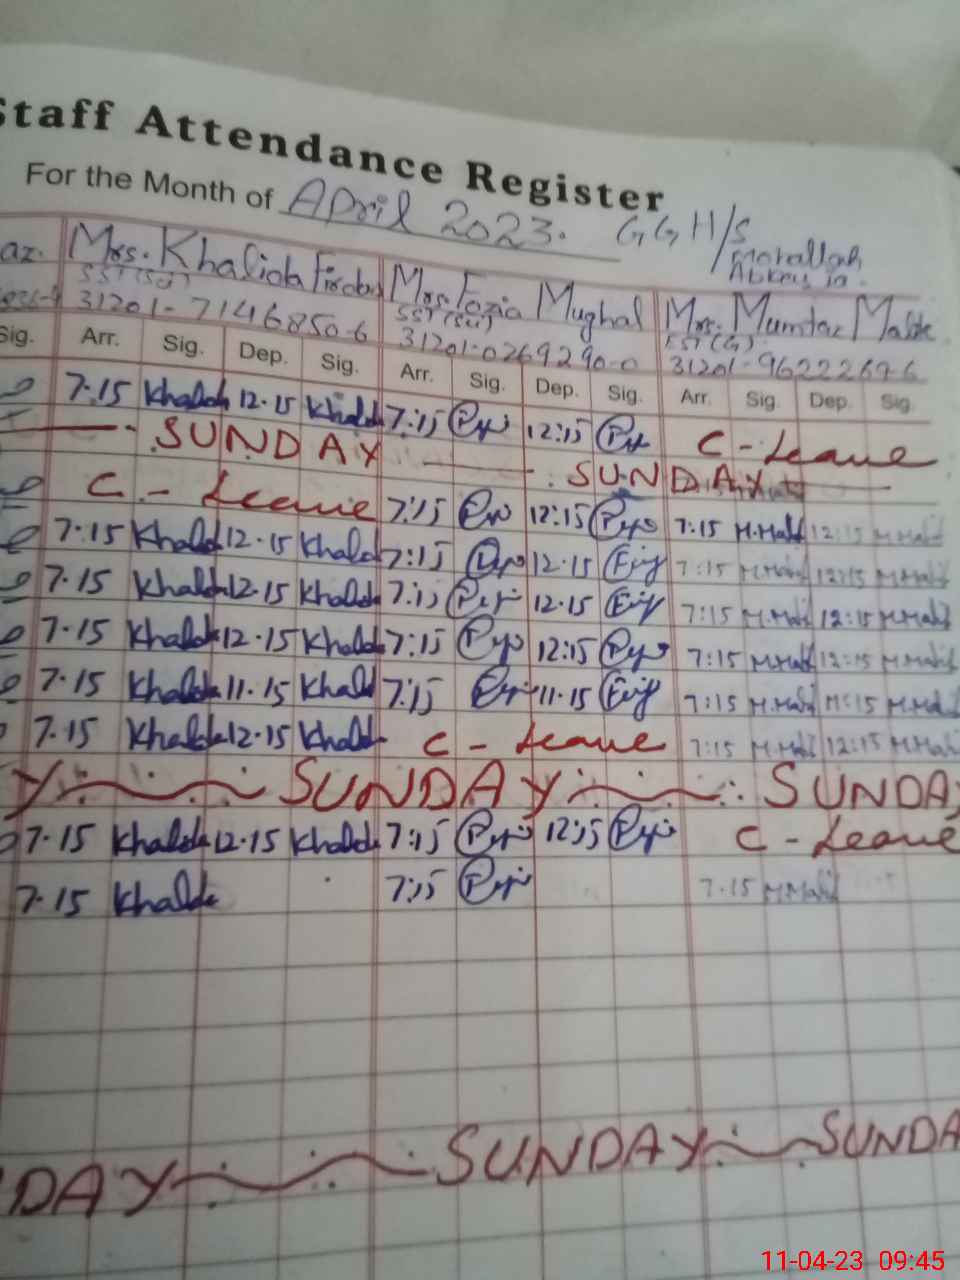 Staff Attendance Register
For the Month of April 2023. G G H/S
Mohallah
az. Mrs. Khalida Mrs. Fozia Mughal Mrs. Mumtaz Malik
SST (Sci) SST (Sci) EST (G)
31201-7146850-6 31201-0269290-0 31201-9622269-6
Sig. Arr. Sig. Dep. Sig. Arr. Sig. Dep. Sig. Arr. Sig. Dep. Sig.
7.15 Khalida 12.15 Khalida 7:15 12:15 C - Leave
SUNDAY SUNDAY
C - Leave 7:15 12:15 7:15 M.Malik 12:15 M.Malik
7.15 Khalida 12.15 Khalida 7:15 12.15 7:15 M.Malik 12:15 M.Malik
7.15 Khalida 12.15 Khalida 7:15 12.15 7:15 M.Malik 12:15 M.Malik
7.15 Khalida 12.15 Khalida 7:15 12:15 7:15 M.Malik 12:15 M.Malik
7.15 Khalida 11.15 Khalida 7:15 11.15 7:15 M.Malik 11:15 M.Malik
7.15 Khalida 12.15 Khalida C - Leave 7:15 M.Malik 12:15 M.Malik
Y SUNDAY SUNDAY
7.15 Khalida 12.15 Khalida 7:15 12:15 C - Leave
7.15 Khalida 7:15 7.15 M.Malik
DAY SUNDAY SUNDA
11-04-23 09:45